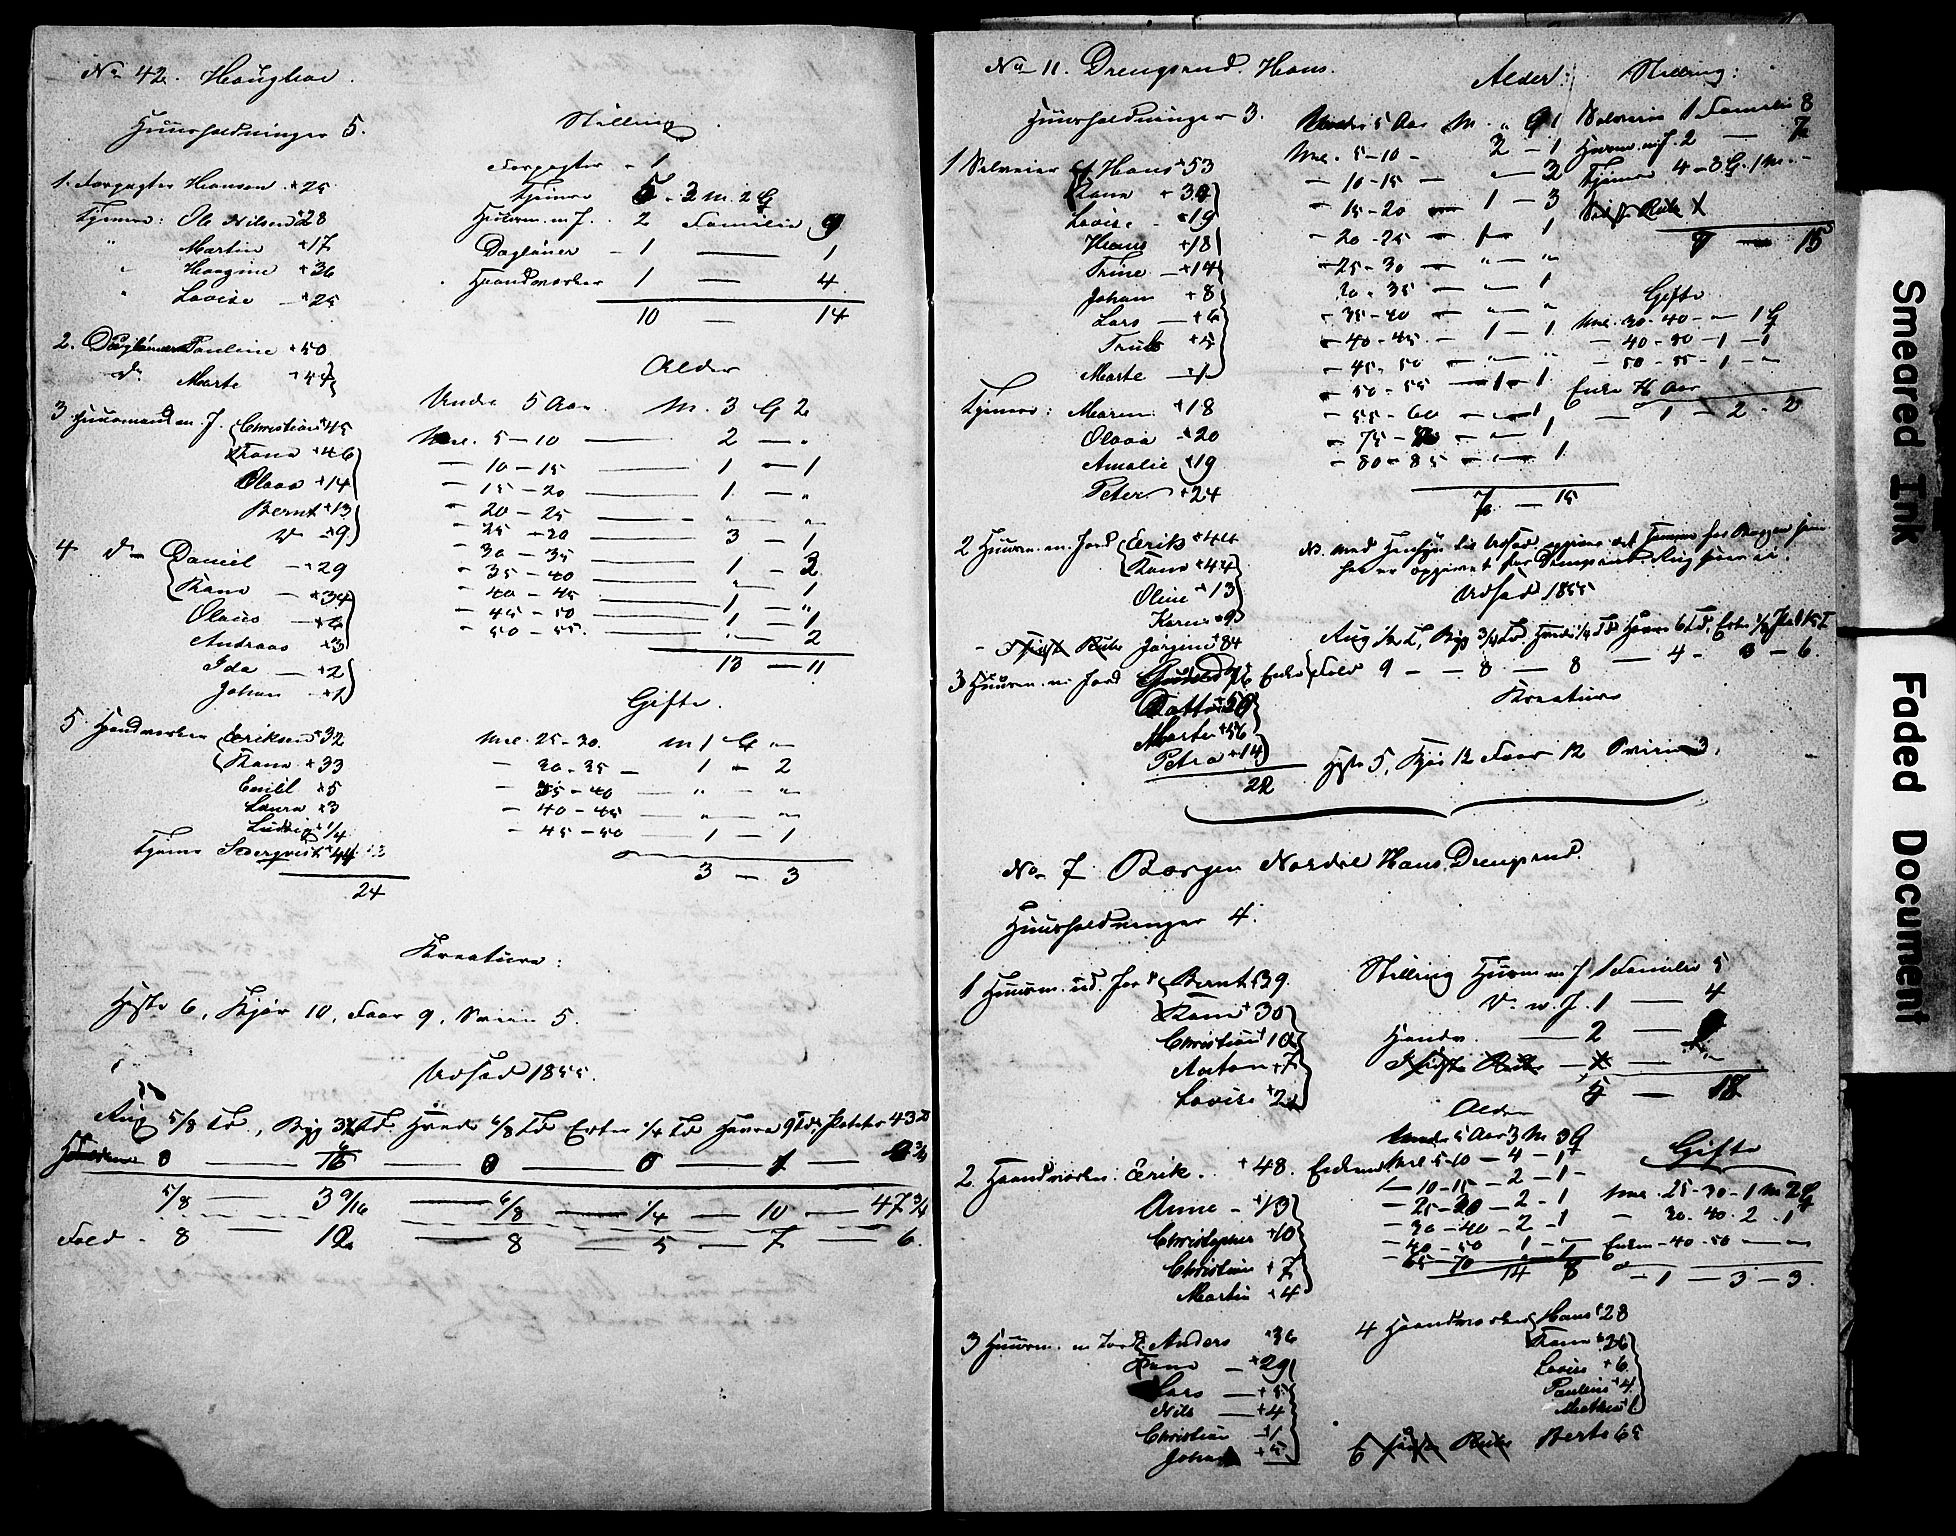 No 42. Haughau
Huusholdninger 5.
1. Forpagter Hansen + 25
Tjener: Ole Nilsen + 28
" Martin + 17
" Hangine + 36
" Lovise — + 25
2. Dagløner Pauline + 50
do Marte + 44
3 Huusmand m. J. Christian + 45
Kone + 46
Olava + 14
Bernt + 13
+ 9
4 do Daniel — + 29
Kone — + 34
Olaus
Andreas + 3
Ida — + 2
Johan + 1
5 Haandværker Eriksen + 32
Kone + 33
Emill + 5
Laura + 3
Ludvig + 1/4
Tjener Sederqvist + 44
24
Stilling
Forpagter - 1
Tjenere 5 - 3 M. 2 G
Huusm. m J. 2 Familie 9
Dagløner - 1 — 1
Haandværker 1 — 4
10 — 14
Alder
Under 5 Aar. M. 3 G 2
Mel. 5-10 — 2 — "
— 10-15 — 1 — 1
— 15-20 — 1 — "
— 20-25 — " — "
— 25-30 — 3 — 1
— 30-35 — 1 — 3
— 35-40 — " — 1
— 40-45 — 1 — "
— 45-50 — 1 — 1
— 50-55 — " — 2
13 — 11
Gifte.
Mel. 25-30. M 1 G "
— 30-35 — 1 — 2
— 35-40 — " — "
— 40-45 — " — "
— 45-50 — 1 — 1
3 — 3
Kreature:
Heste 6, Kjør 10, Faar 9, Sviin 5.
Udsæd 1855.
Rug 5/8 Td, Byg Td. Hvede 6/8 Td Erter 1/4 Td Havre 9 Td, Poteter 43
0 — — 0 — 0 — 1 —
5/8 — 3 9/16 — 6/8 — 1/4 — 10 — 47 3/4
Fold - 8 — 12 — 8 — 5 — 7 — 6.
No 11. Drengsrud. Hans.
Huusholdninger 3.
1 Selveier Hans + 53
Kone +
Lovise - + 19
Hans + 18
Trine — + 14
Johan + 8
Lars — + 6
+ 5
Marte — 1
Tjenere: Maren + 18
Olava + 20
Amalie + 19
Peter + 24
2 Huusm. m. Jord Erik + 44
Kone + 44
Oline + 13
Karen + 9
Jørgine + 84
3 Huusm. m. Jord Enke
Marte + 56
Petra + 14
22
Alder:
Under 5 Aar M. " G 1
Mel. 5-10 - 3 - 1
— 10-15 — " — 3
— 15-20 — 1 — 3
— 20-25 — 1 — 1
— 25-30 — " — "
— 30-35 — " — 1
— 35-40 — " — "
— 40-45 — 1 — 1
— 45-50 — " — "
— 50-55 — 1 — 1
— 55-60 — " — 1
— 75- — " — 1
— 80-85 — " — 1
7 — 15
Stilling:
Selveier 1 Familie 8
Huusm. m J. 2 — 7
Tjenere 4 - 3 G. 1 M. -
7 — 15
Gifte
Mel. 30-40 — " 1 G
— 40-50 — 1 — 1
— 50-55 — 1 — "
Enke
— 1 — 2 - 2
Udsæd 1855
Fold 9 — 8 — 8 — 4 - — 6.
Kreature
Heste 5, Kjør 12 Faar 12 Sviin 3.
No 7 Borgen Nordre Hans Drengsrud.
Huusholdninger 4.
1 Huusm. ud. Jord Bernt + 39.
Kone + 30
Christian + 10
Anton + 7
Lovise + 2
2 Haandværker Erik. + 48. Enkem
Anne - + 13
Christopher + 10
Christian + 7
Martin + 4
3 Huusm. m Jord. Anders + 36
Kone — + 29
Lars —
Nils — + 4
Christian — 1
Johan
Stilling Huusm m J 1 Familie 5
Do u. J. 1 — 4
Handv. — 2 —
5 — 18
Alder
Under 5 Aar 3 M 3 G
Mel 5-10 — 4 — 1
— 10-15 — 2 — 1
— 25-30 — 2 — 1
— 30-40 — 2 — 1
— 40-50 1 — "
65-70 — 1
14 8
Gifte
Mel. 25-30 - 1 M 2 G
— 30-40 - 2 - 1
Enkem - 40-50 — "
— 1 — 3 — 3.
4 Haandværker Hans + 28
Kone + 26
Lovise + 6
Pauline + 4
Mathea 1
Berte 65
Smeared Ink
Faded Document